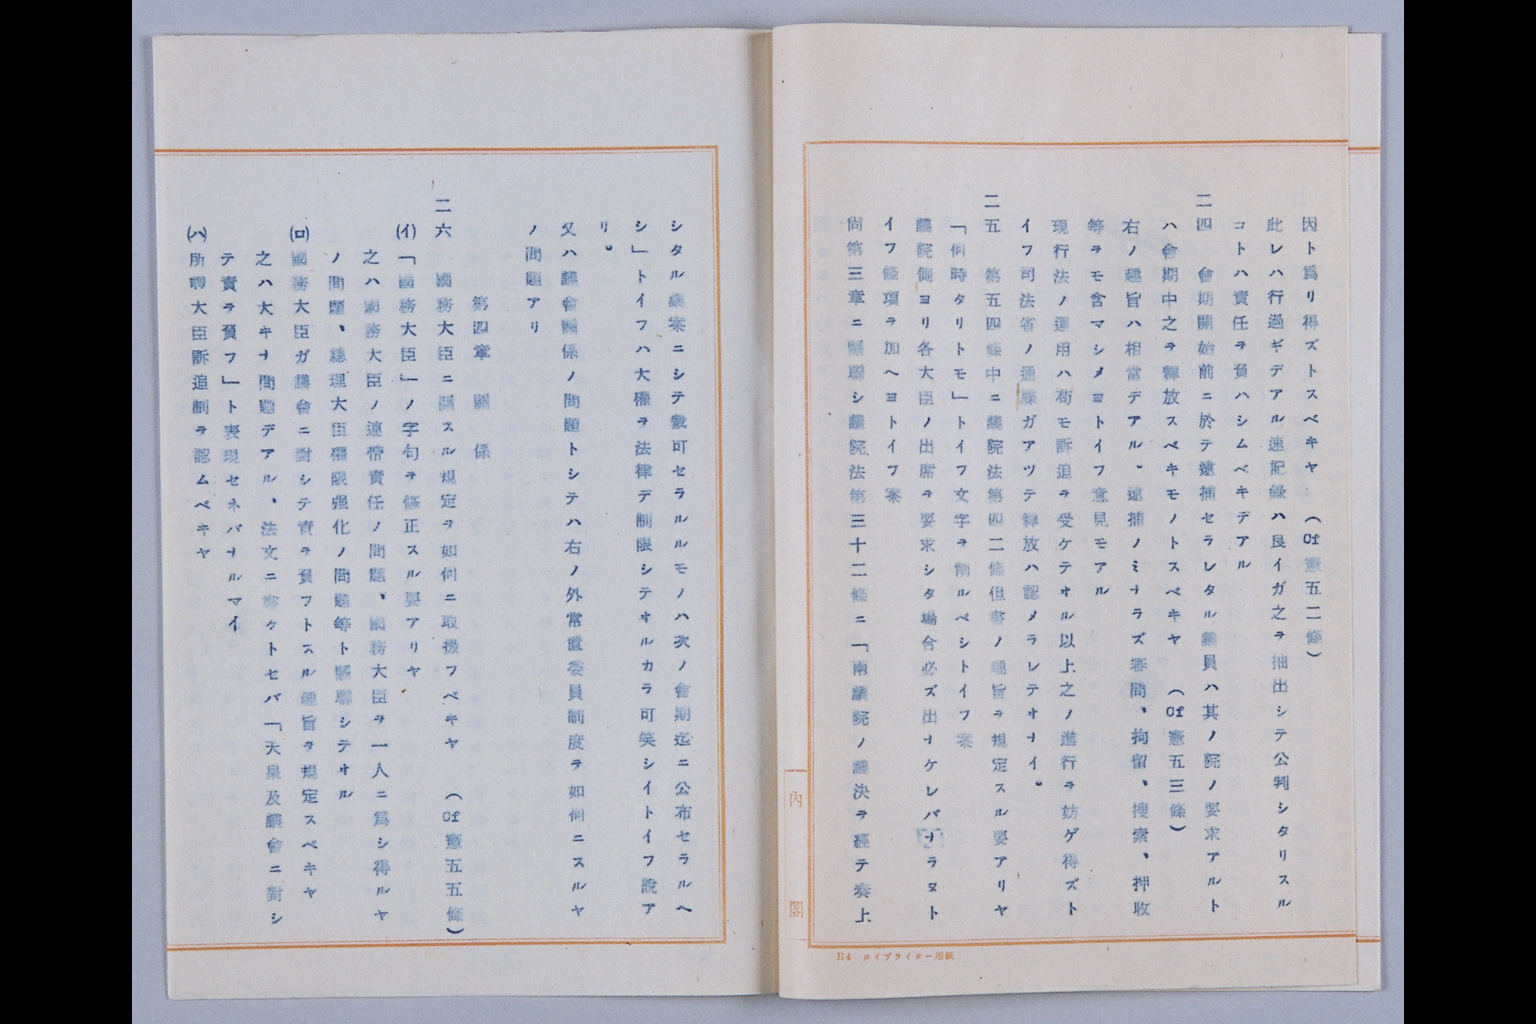 因ト爲リ得ズトスベキヤ (Of憲五二條)
此レハ行過ギデアル速記錄ハ良イガ之ヲ抽出シテ公判シタリスル
コトハ責任ヲ負ハシムベキデアル
二四 會期開始前ニ於テ逮捕セラレタル議員ハ其ノ院ノ要求アルト
ハ會期中之ヲ釋放スベキモノトスベキヤ (Of憲五三條)
右ノ趣旨ハ相當デアル、逮捕ノミナラズ審問、拘留、搜索、押收
等ヲモ含マシメヨトイフ意見モアル
現行法ノ運用ハ苟モ訴追ヲ受ケテオル以上之ノ進行ヲ妨ゲ得ズト
イフ司法省ノ通牒ガアツテ釋放ハ認メラレテオナイ。
二五 第五四條中ニ議院法第四二條但書ノ趣旨ヲ規定スル要アリヤ
「何時タリトモ」トイフ文字ヲ削ルベシトイフ案
議院側ヨリ各大臣ノ出席ヲ要求シタ場合必ズ出ナケレバナラヌト
イフ條項ヲ加ヘヨトイフ案
尙第三章ニ關聯シ議院法第三十二條ニ「兩議院ノ議決ヲ經テ奏上
シタル議案ニシテ裁可セラルルモノハ次ノ會期迄ニ公布セラルヘ
シ」トイフハ大權ヲ法律デ制限シテオルカラ可笑シイトイフ說ア
リ。
又ハ議會關係ノ問題トシテハ右ノ外常置委員制度ヲ如何ニスルヤ
ノ問題アリ
第四章 關係
二六 國務大臣ニ關スル規定ヲ如何ニ取扱フベキヤ (Of憲五五條)
(イ)「國務大臣」ノ字句ヲ修正スル要アリヤ
之ハ國務大臣ノ連帶責任ノ問題、國務大臣ヲ一人ニ爲シ得ルヤ
ノ問題、總理大臣權限强化ノ問題等ト關聯シテオル
(ロ)國務大臣ガ議會ニ對シテ責ヲ負フトスル趣旨ヲ規定スベキヤ
之ハ大キナ問題デアル、法文ニ書クトセバ「天皇及議會ニ對シ
テ責ヲ負フ」ト表現セネバナルマイ
(ハ)所謂大臣訴追制ヲ認ムベキヤ
內閣
B4 タイプライター用紙